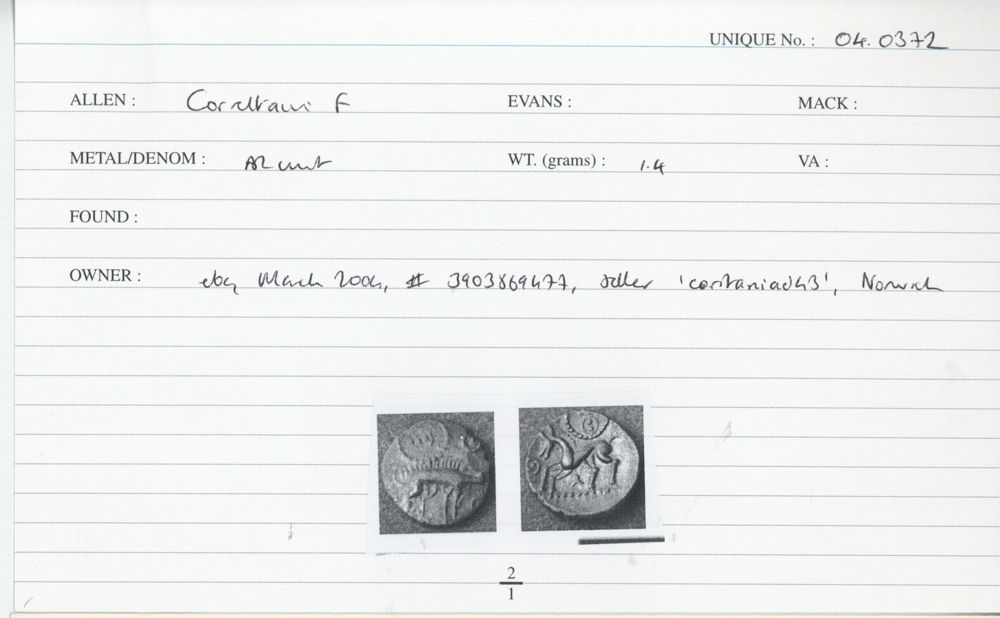 UNIQUE No. : 04.0372
ALLEN : Correltauvi F EVANS : MACK :
METAL/DENOM : AR unit WT. (grams) : 1.4 VA :
FOUND :
OWNER : ebay March 2004, # 3903869477, seller 'coritaniad43', Norwich
2
1